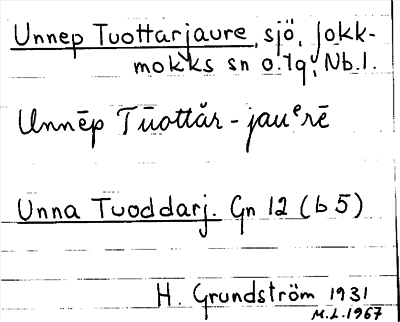 Unnep Tuottarjaure, sjö, Jokk-
mokks sn o. lg, Nb. l.
Unnēp Tūottăr-jauᵉrē
Unna Tuoddarj. Gn 12 (b 5)
H. Grundström 1931
M.L. 1967